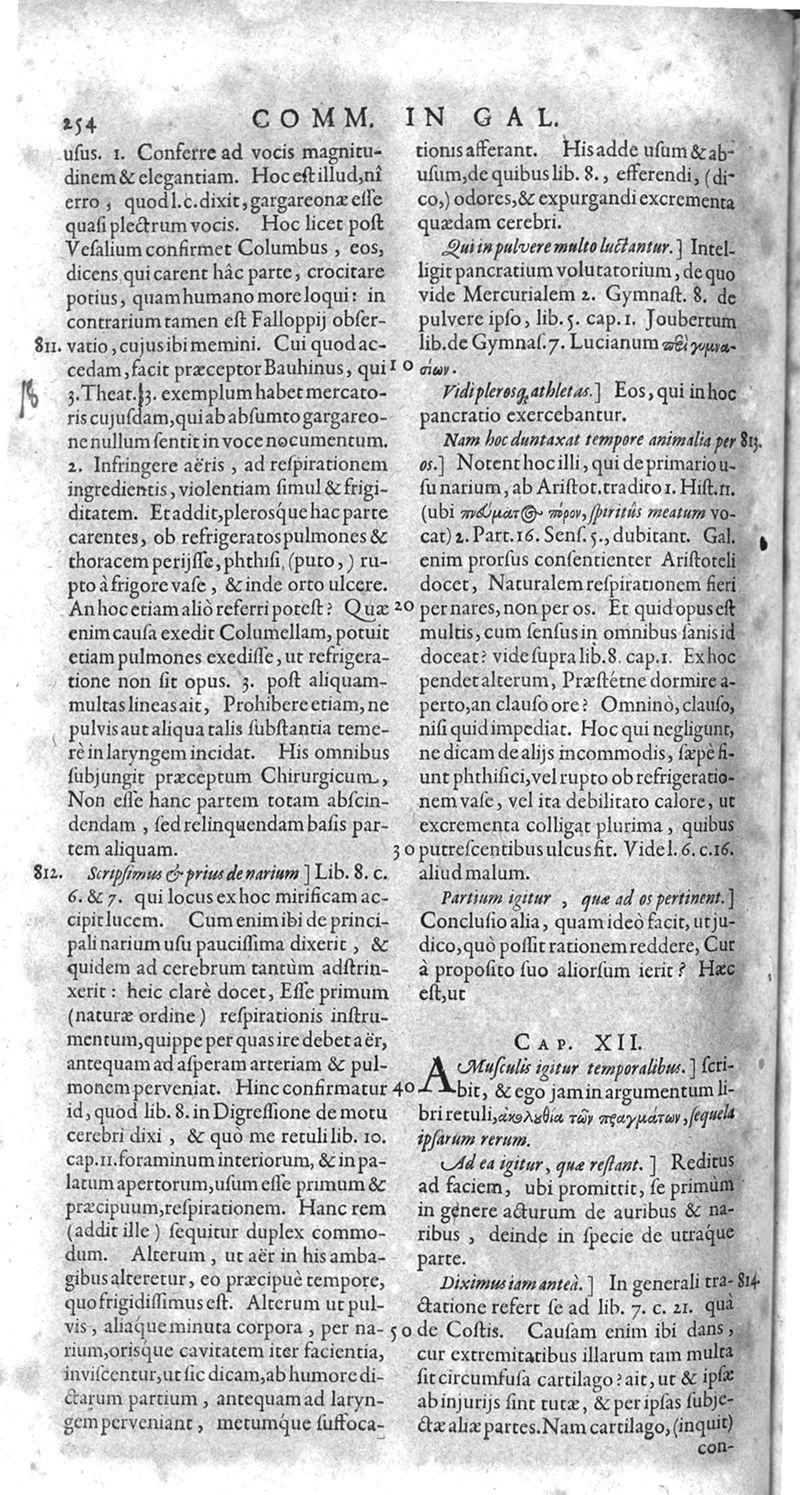 254
COMM. IN GAL.
usus. 1. Conferre ad vocis magnitu-
dinem & elegantiam. Hoc est illud, nî
erro, quod l. c. dixit, gargareonæ esse
quasi plectrum vocis. Hoc licet post
Vesalium confirmet Columbus, eos,
dicens qui carent hâc parte, crocitare
potius, quam humano more loqui: in
contrarium tamen est Falloppij obser-
811. vatio, cujus ibi memini. Cui quod ac-
cedam, facit præceptor Bauhinus, qui
3. Theat. 3. exemplum habet mercato-
ris cujusdam, qui ab absumto gargareo-
ne nullum sentit in voce nocumentum.
2. Infringere aëris, ad respirationem
ingredientis, violentiam simul & frigi-
ditatem. Et addit, plerosq́ue hac parte
carentes, ob refrigeratos pulmones &
thoracem perijsse, phthisi, (puto,) ru-
pto à frigore vase, & inde orto ulcere.
An hoc etiam aliò referri potest? Quæ
enim causa exedit Columellam, potuit
etiam pulmones exedisse, ut refrigera-
tione non sit opus. 3. post aliquam-
multas lineas ait, Prohibere etiam, ne
pulvis aut aliqua talis substantia teme-
rè in laryngem incidat. His omnibus
subjungit præceptum Chirurgicum,
Non esse hanc partem totam abscin-
dendam, sed relinquendam basis par-
tem aliquam.
812. Scripsimus & prius de narium ] Lib. 8. c.
6. & 7. qui locus ex hoc mirificam ac-
cipit lucem. Cum enim ibi de princi-
pali narium usu paucissima dixerit, &
quidem ad cerebrum tantùm adstrin-
xerit: heic clarè docet, Esse primum
(naturæ ordine) respirationis instru-
mentum, quippe per quas ire debet aër,
antequam ad asperam arteriam & pul-
monem perveniat. Hinc confirmatur
id, quod lib. 8. in Digressione de motu
cerebri dixi, & quò me retuli lib. 10.
cap. 11. foraminum interiorum, & in pa-
latum apertorum, usum esse primum &
præcipuum, respirationem. Hanc rem
(addit ille) sequitur duplex commo-
dum. Alterum, ut aër in his amba-
gibus alteretur, eo præcipuè tempore,
quo frigidissimus est. Alterum ut pul-
vis, aliaq́ue minuta corpora, per na-
rium, orisque cavitatem iter facientia,
inviscentur, ut sic dicam, ab humore di-
ctarum partium, antequam ad laryn-
gem perveniant, metumq́ue suffoca-
tionis afferant. His adde usum & ab-
usum, de quibus lib. 8., efferendi, (di-
co,) odores, & expurgandi excrementa
quædam cerebri.
Qui in pulvere multo luctantur. ] Intel-
ligit pancratium volutatorium, de quo
vide Mercurialem 2. Gymnast. 8. de
pulvere ipso, lib. 5. cap. 1. Joubertum
lib. de Gymnas. 7. Lucianum περὶ γυμνα-
10 σίων.
Vidi plerosq; athletas. ] Eos, qui in hoc
pancratio exercebantur.
Nam hoc duntaxat tempore animalia per 813.
os. ] Notent hoc illi, qui de primario u-
su narium, ab Aristot. tradito 1. Hist. 11.
(ubi πνεύματος πόρον, spiritûs meatum vo-
cat) 2. Part. 16. Sens. 5., dubitant. Gal.
enim prorsus consentienter Aristoteli
docet, Naturalem respirationem fieri
20 per nares, non per os. Et quid opus est
multis, cum sensus in omnibus sanis id
doceat? vide supra lib. 8. cap. 1. Ex hoc
pendet alterum, Præstétne dormire a-
perto, an clauso ore? Omninò, clauso,
nisi quid impediat. Hoc qui negligunt,
ne dicam de alijs incommodis, sæpè fi-
unt phthisici, vel rupto ob refrigeratio-
nem vase, vel ita debilitato calore, ut
excrementa colligat plurima, quibus
30 putrescentibus ulcus fit. Vide l. 6. c. 16.
aliud malum.
Partium igitur, quæ ad os pertinent. ]
Conclusio alia, quam ideò facit, ut ju-
dico, quò possit rationem reddere, Cur
à proposito suo aliorsum ierit? Hæc
est, ut
CAP. XII.
A Musculis igitur temporalibus. ] scri-
40 bit, & ego jam in argumentum li-
bri retuli, ἀκολουθία τῶν πραγμάτων, sequela
ipsarum rerum.
Ad ea igitur, quæ restant. ] Reditus
ad faciem, ubi promittit, se primùm
in genere acturum de auribus & na-
ribus, deinde in specie de utraq́ue
parte.
Diximus iam anteà. ] In generali tra- 814.
ctatione refert se ad lib. 7. c. 21. quà
50 de Costis. Causam enim ibi dans,
cur extremitatibus illarum tam multa
sit circumfusa cartilago? ait, ut & ipsæ
ab injurijs sint tutæ, & per ipsas subje-
ctæ aliæ partes. Nam cartilago, (inquit)
con-